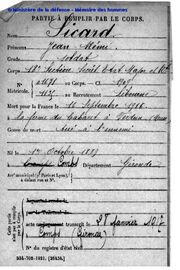 © Ministère de la défense - Mémoire des hommes
PARTIE À REMPLIR PAR LE CORPS.
Sicard
Nom
Prénoms Jean Rémi
Grade soldat
Corps 18e Section Secét Etat Major et
N° 21671 au Corps. — Cl. 1907
Matricule. au Recrutement Libourne
Mort pour la France le 16 Septembre 1916
à la ferme de Cabaret à Verdun (Meuse)
Genre de mort Tué à l'ennemi
Né le 1er Octobre 1887
à Département Gironde
Arr' municipal (p' Paris et Lyon),
à défaut rue et N°.
Jugement rendu le
par le Tribunal de
acte ou jugement transcrit le 28 Janvier 1917
à
N° du registre d'état civil
534-708-1921. [26434.]